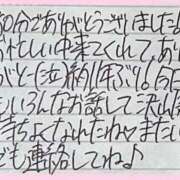 80分でありがとうございました!
お忙しい中来てくれて、あり
がとー(泣)約1年ぶり!今日
もいろんなお話して沢山
気持ちよくなれたねっまたい
でも連絡してね♪